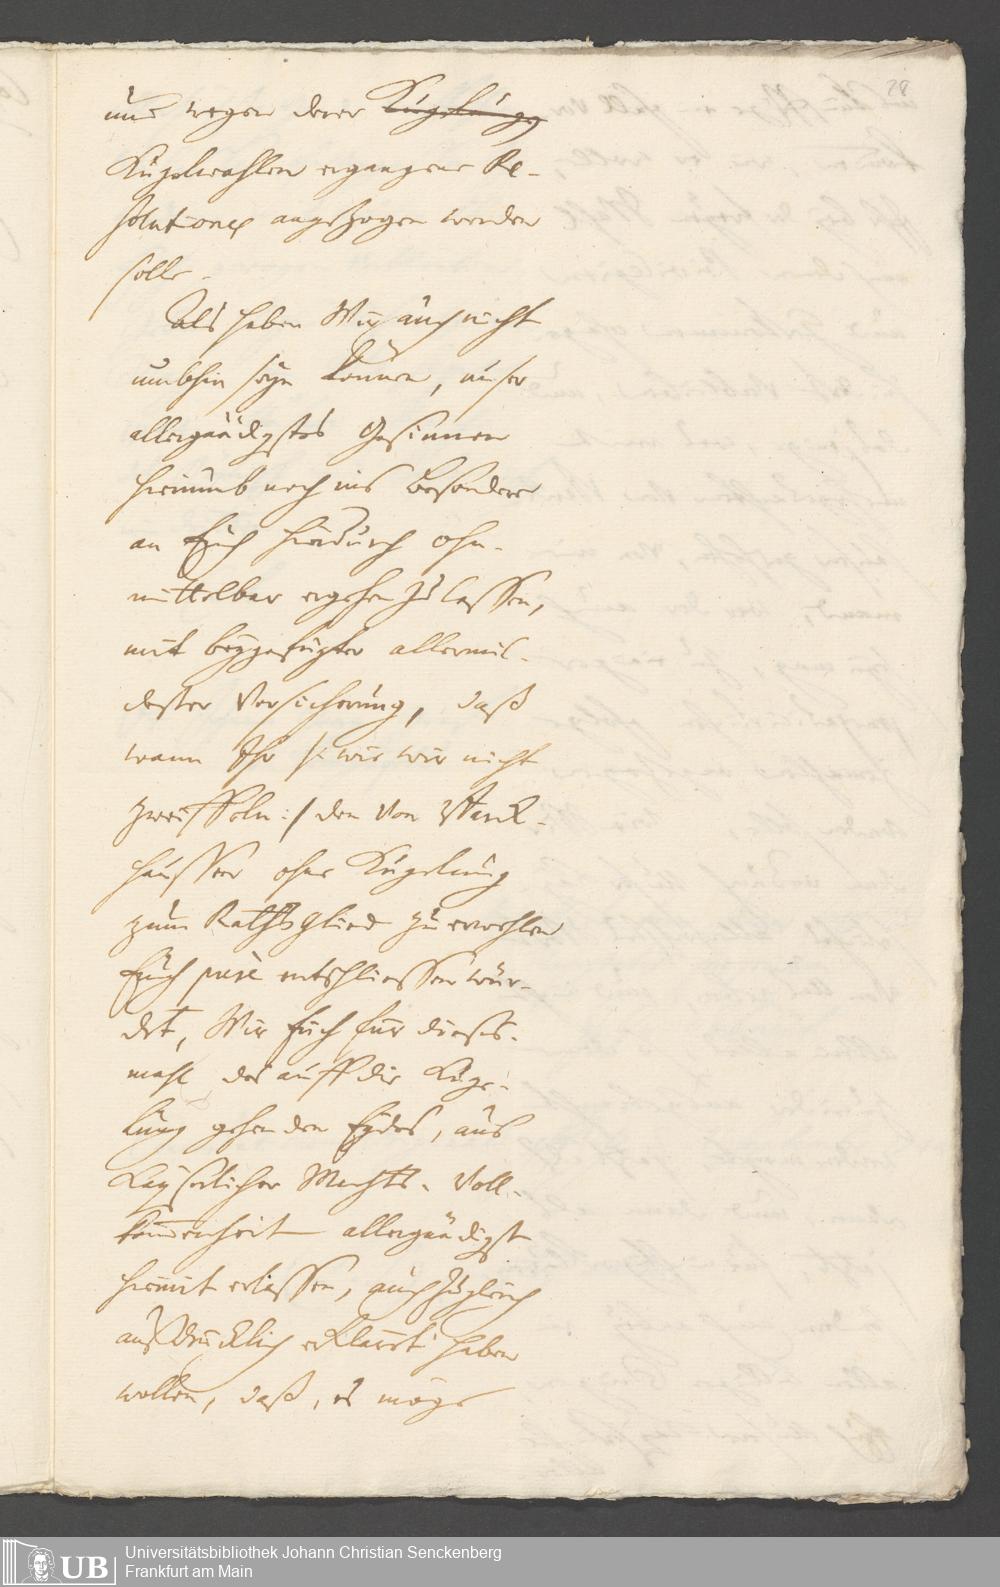 28
und wegen derer Kugelung
Kugelwahlen ergangene Re-
solutiones angezogen werden
solle.
Als haben Wir auch nicht
umbhin seyn können, unser
allergnädigstes Gesinnen
hierumb noch ins besondere
an Euch hierdurch ohn-
mittelbar ergehen zu lassen,
mit beygefügter allermil-
dester Versicherung, daß
wann Ihr /: wie wir nicht
zweiffeln :/ den von
häussen ohne Kugelung
zum Rathsglied zu erwehlen
Euch pure entschliessen wür-
det, Wir Euch für dieses-
mahl des auff die Kuge-
lung gehenden Eydes, aus
Kayserlicher Machts-Voll-
kommenheit allergnädigst
hiermit erlassen, auch zugleich
ausdrücklich erklärt haben
wollen, daß, es möge
UB Universitätsbibliothek Johann Christian Senckenberg
Frankfurt am Main